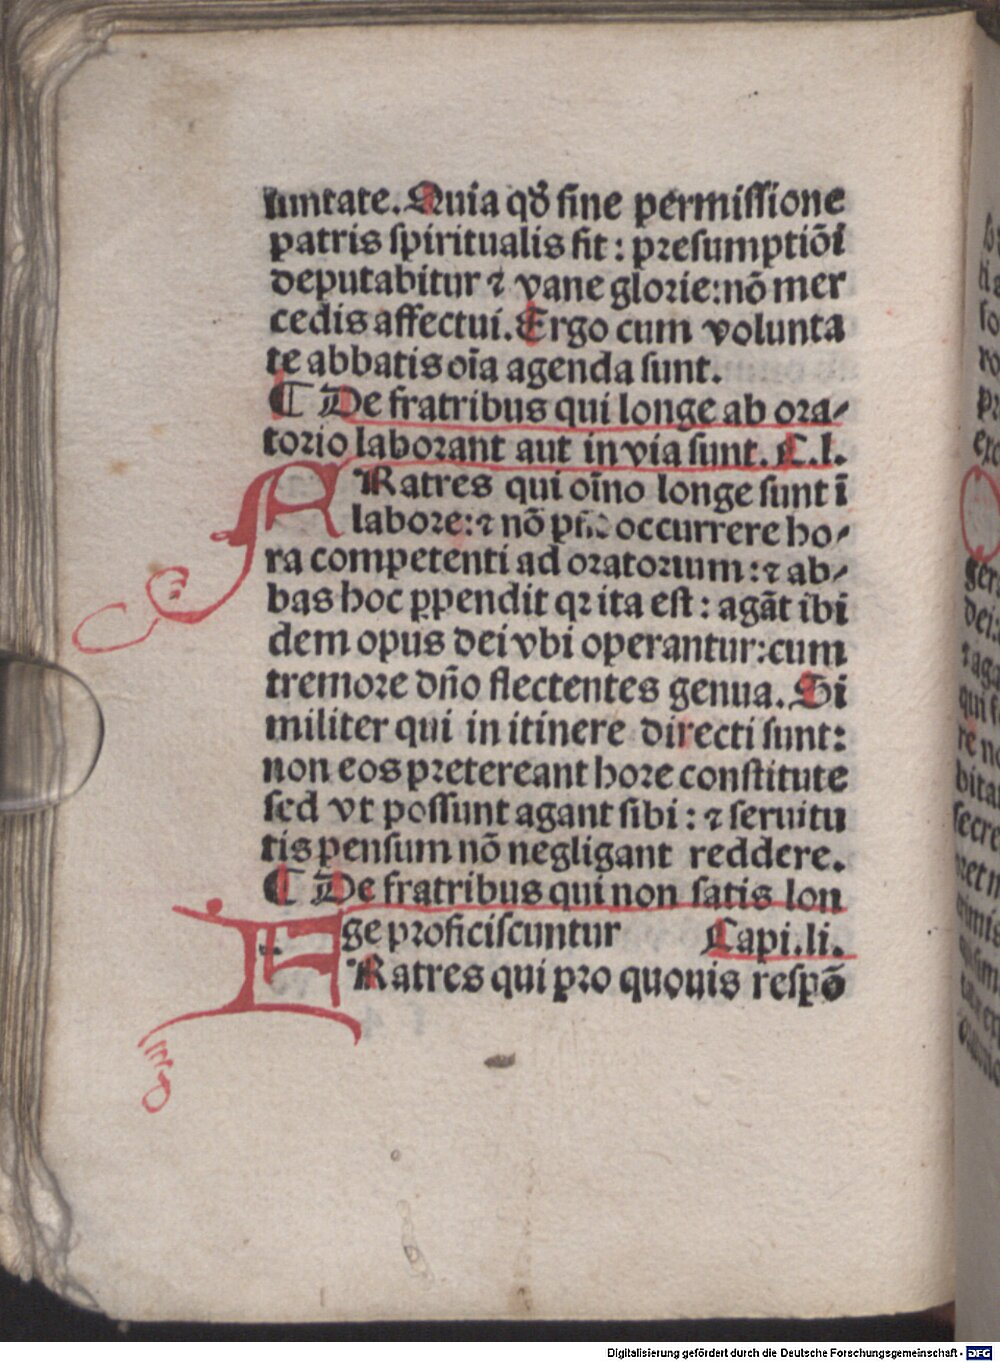 luntate. Quia qđ sine permissione
patris spiritualis fit: presumptiõi
deputabitur ⁊ vane glorie: nõ mer
cedis affectui. Ergo cum volunta
te abbatis oĩa agenda sunt.
¶ De fratribus qui longe ab ora⸗
torio laborant aut in via sunt. C. l.
FRatres qui oĩno longe sunt ĩ
labore: ⁊ nõ occurrere ho⸗
ra competenti ad oratorium: ⁊ ab⸗
bas hoc ꝑpendit qꝛ ita est: agãt ibi
dem opus dei vbi operantur: cum
tremore dño flectentes genua. Si
militer qui in itinere directi sunt:
non eos pretereant hore constitute
sed vt possunt agant sibi: ⁊ seruitu
tis pensum nõ negligant reddere.
¶ De fratribus qui non satis lon
ge proficiscuntur Capi. li.
FRatres qui pro quouis respõ
Digitalisierung gefördert durch die Deutsche Forschungsgemeinschaft - DFG